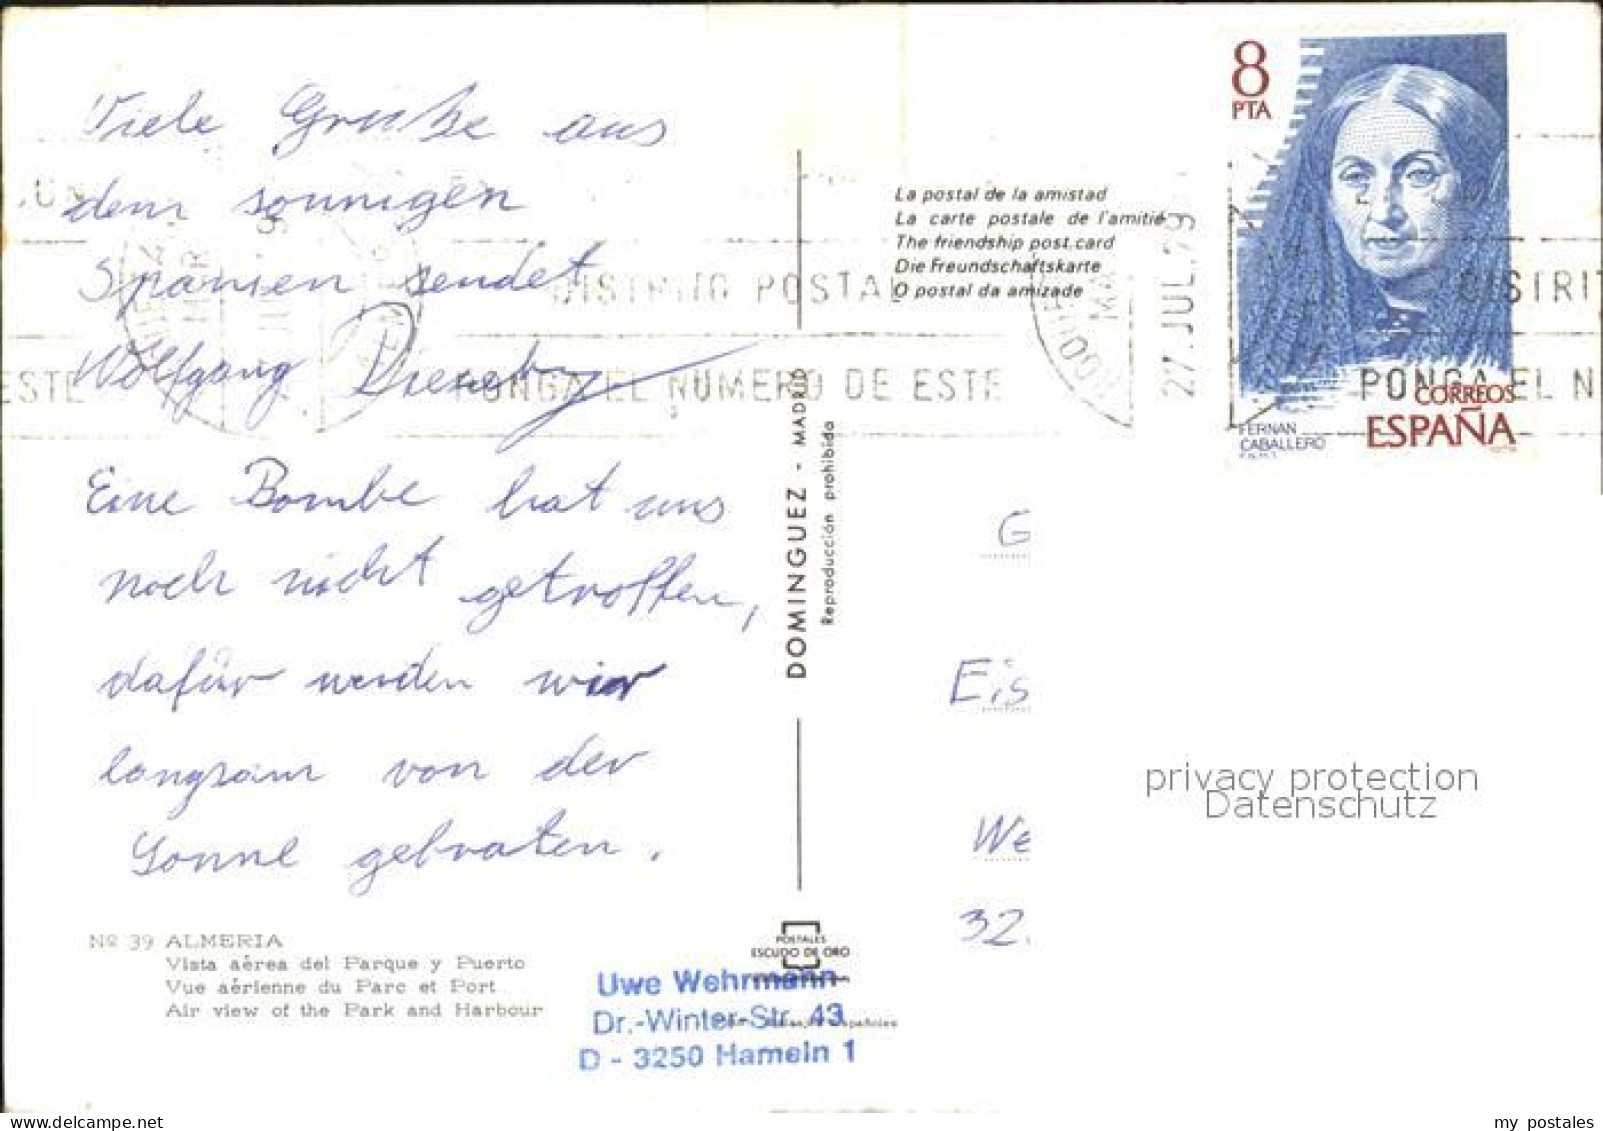 Viele Grüße aus
dem sonnigen
Spanien sendet
Wolfgang
Eine Bombe hat uns
noch nicht getroffen,
dafür werden wir
langsam von der
Sonne gebraten.
Nº 39 ALMERIA
Vista aérea del Parque y Puerto
Vue aérienne du Parc et Port
Air view of the Park and Harbour
DOMINGUEZ - MADRID
Reproducción prohibida
POSTALES
ESCUDO DE ORO
Uwe Wehrmann
Dr.-Winter-Str. 43
D - 3250 Hameln 1
La postal de la amistad
La carte postale de l'amitié
The friendship post card
Die Freundschaftskarte
O postal da amizade
DISTRITO POSTAL
PONGA EL NUMERO DE ESTE
ESTE
27 JUL.79
DISTRIT
PONGA EL N
8
PTA
CORREOS
ESPAÑA
FERNAN
CABALLERO
F.N.M.T.
G
Eis
We
32.
privacy protection
Datenschutz
my postales